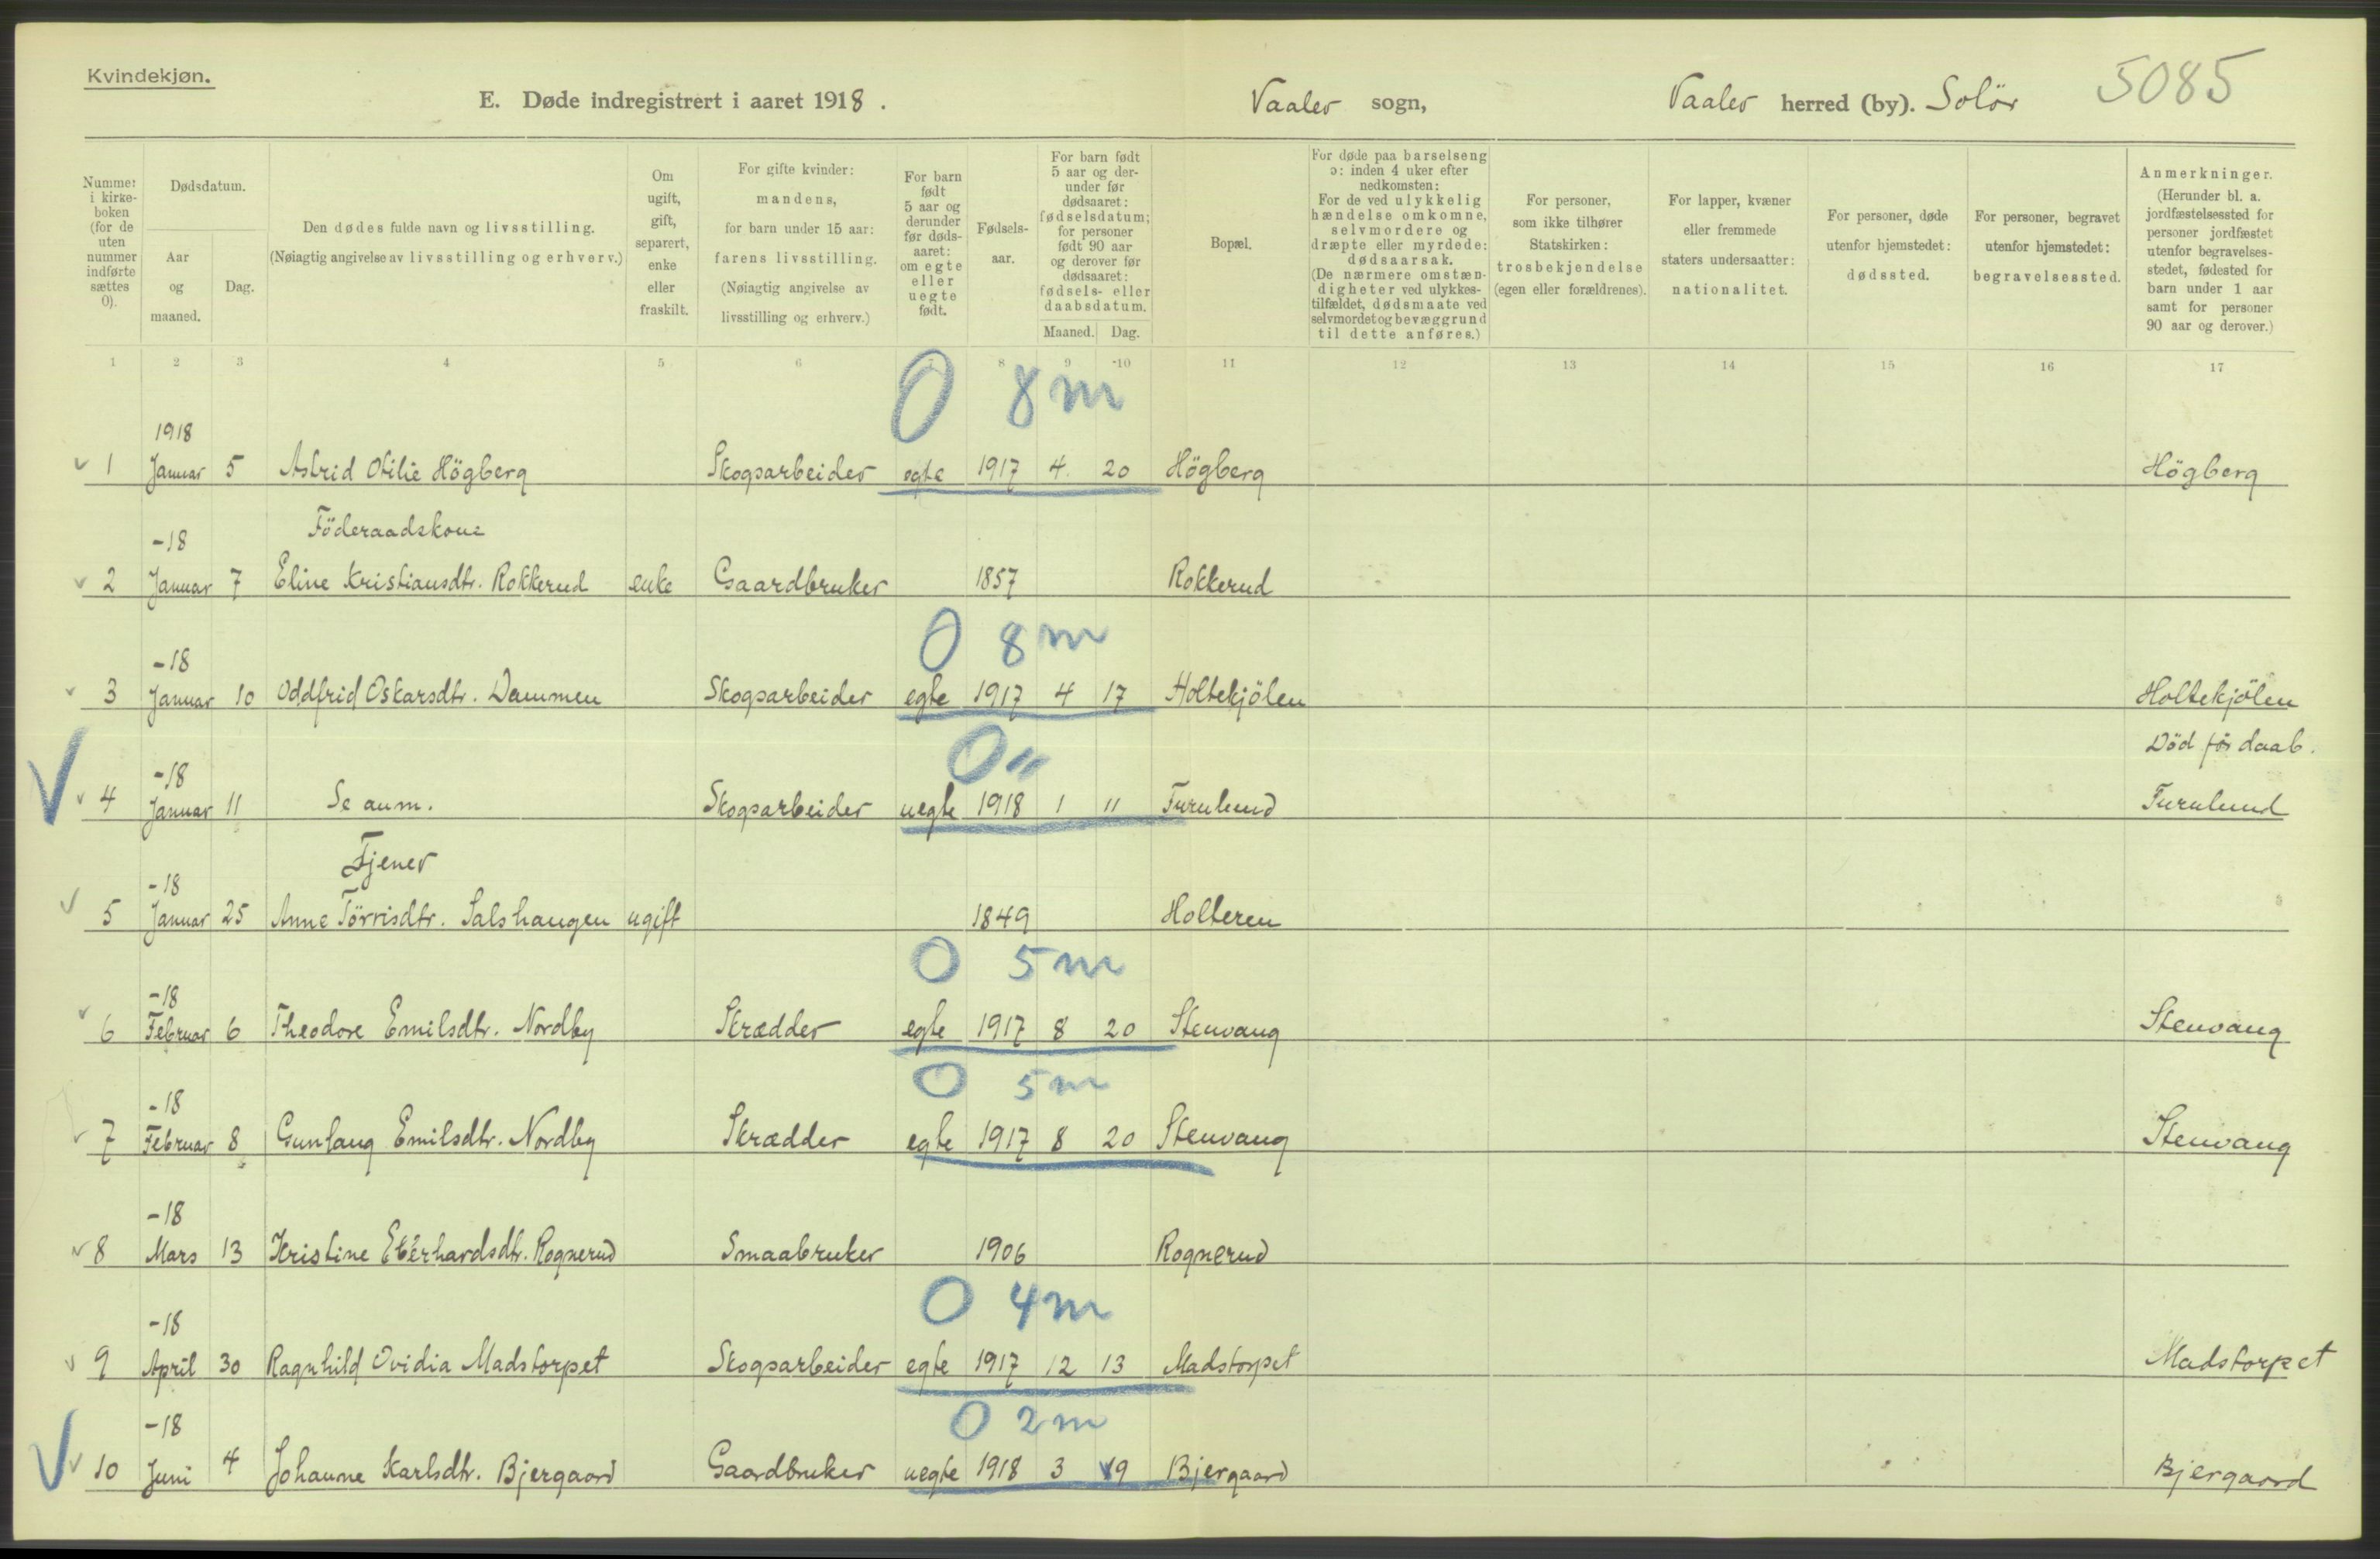 Kvindekjøn.
E. Døde indregistrert i aaret 1918. Vaaler sogn, Vaaler herred (by). Solör 5085
Nummer i kirkeboken (for de uten nummer indførte sættes 0).
Dødsdatum.
Aar og maaned.
Dag.
Den dødes fulde navn og livsstilling.
(Nøiagtig angivelse av livsstilling og erhverv.)
Om ugift, gift, separert, enke eller fraskilt.
For gifte kvinder: mandens, for barn under 15 aar: farens livsstilling. (Nøiagtig angivelse av livsstilling og erhverv.)
For barn født 5 aar og derunder før dødsaaret: om egte eller uegte født.
Fødselsaar.
For barn født 5 aar og derunder før dødsaaret: fødselsdatum; for personer født 90 aar og derover før dødsaaret: fødsels- eller daabsdatum.
Maaned. Dag.
Bopæl.
For døde paa barselseng ɔ: inden 4 uker efter nedkomsten: For de ved ulykkelig hændelse omkomne, selvmordere og dræpte eller myrdede: dødsaarsak. (De nærmere omstændigheter ved ulykkestilfældet, dødsmaate ved selvmordet og bevæggrund til dette anføres.)
For personer, som ikke tilhører Statskirken: trosbekjendelse (egen eller forældrenes).
For lapper, kvæner eller fremmede staters undersaatter: nationalitet.
For personer, døde utenfor hjemstedet: dødssted.
For personer, begravet utenfor hjemstedet: begravelsessted.
Anmerkninger. (Herunder bl. a. jordfæstelsessted for personer jordfæstet utenfor begravelsesstedet, fødested for barn under 1 aar samt for personer 90 aar og derover.)
1 2 3 4 5 6 7 8 9 10 11 12 13 14 15 16 17
0 8 m
1918
1 Januar 5 Astrid Otilie Högberg Skogsarbeider egte 1917 4. 20 Högberg Högberg
Föderaadskone
-18
2 Januar 7 Eline Kristiansdtr. Rokkerud enke Gaardbruker 1857 Rokkerud
0 8 m
-18
3 Januar 10 Oddfrid Oskarsdtr. Dammen Skogsarbeider egte 1917 4 17 Holtekjölen Holtekjölen
0 "
Död før daab.
-18
4 Januar 11 Se anm. Skogsarbeider uegte 1918 1 11 Furulund Furulund
Tjener
-18
5 Januar 25 Anne Törrisdtr. Salshaugen ugift 1849 Holteren
0 5 m
-18
6 Februar 6 Theodore Emilsdtr. Nordby Skrædder egte 1917 8 20 Stenvang Stenvang
0 5 m
-18
7 Februar 8 Gunlaug Emilsdtr. Nordby Skrædder egte 1917 8 20 Stenvang Stenvang
-18
8 Mars 13 Kristine Eberhardsdtr. Rognerud Smaabruker 1906 Rognerud
0 4 m
-18
9 April 30 Ragnhild Ovidia Madstorpet Skogsarbeider egte 1917 12 13 Madstorpet Madstorpet
0 2 m
-18
10 Juni 4 Johanne Karlsdtr. Bjergaard Gaardbruker uegte 1918 3 19 Bjergaard Bjergaard